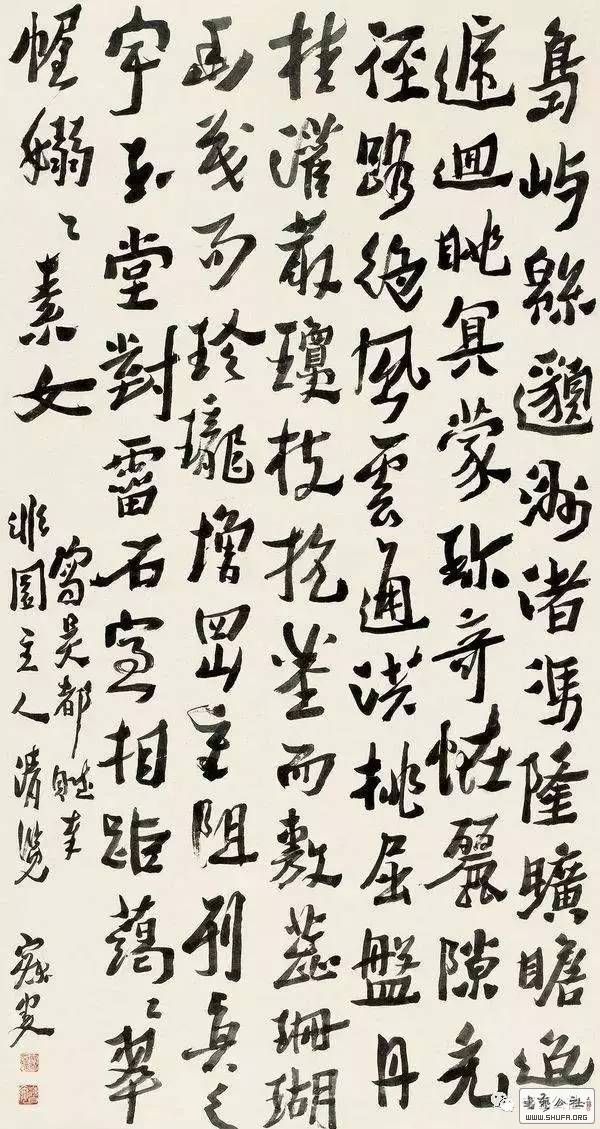 島嶼緜邈洲渚馮隆曠瞻迢
遞迴眺冥蒙珎奇恠麗隙充
徑路絶風雲通洪桃屈盤丹
桂灌叢瓊枝抗莖而敷蕊珊瑚
幽茂而玲瓏增岡重阻列真之
宇玉堂對霤石室相距藹〻翠
幄嫋〻素女
寫吴都賦奉
園主人清覽 寐叟
書法公社
WWW.SHUFA.ORG